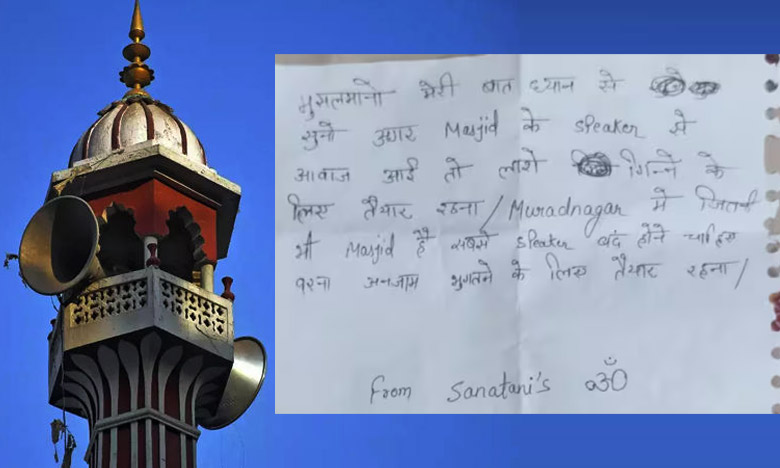 मुसलमानो मेरी बात ध्यान से
सुनो अगर Masjid के speaker से
आवाज आई तो लाशे गिनने के
लिए तैयार रहना / Muradnagar मे जितनी
भी Masjid है सबसे speaker बंद होने चाहिए
वरना अनजाम भुगतने के लिए तैयार रहना /
From Sanatani's ॐ